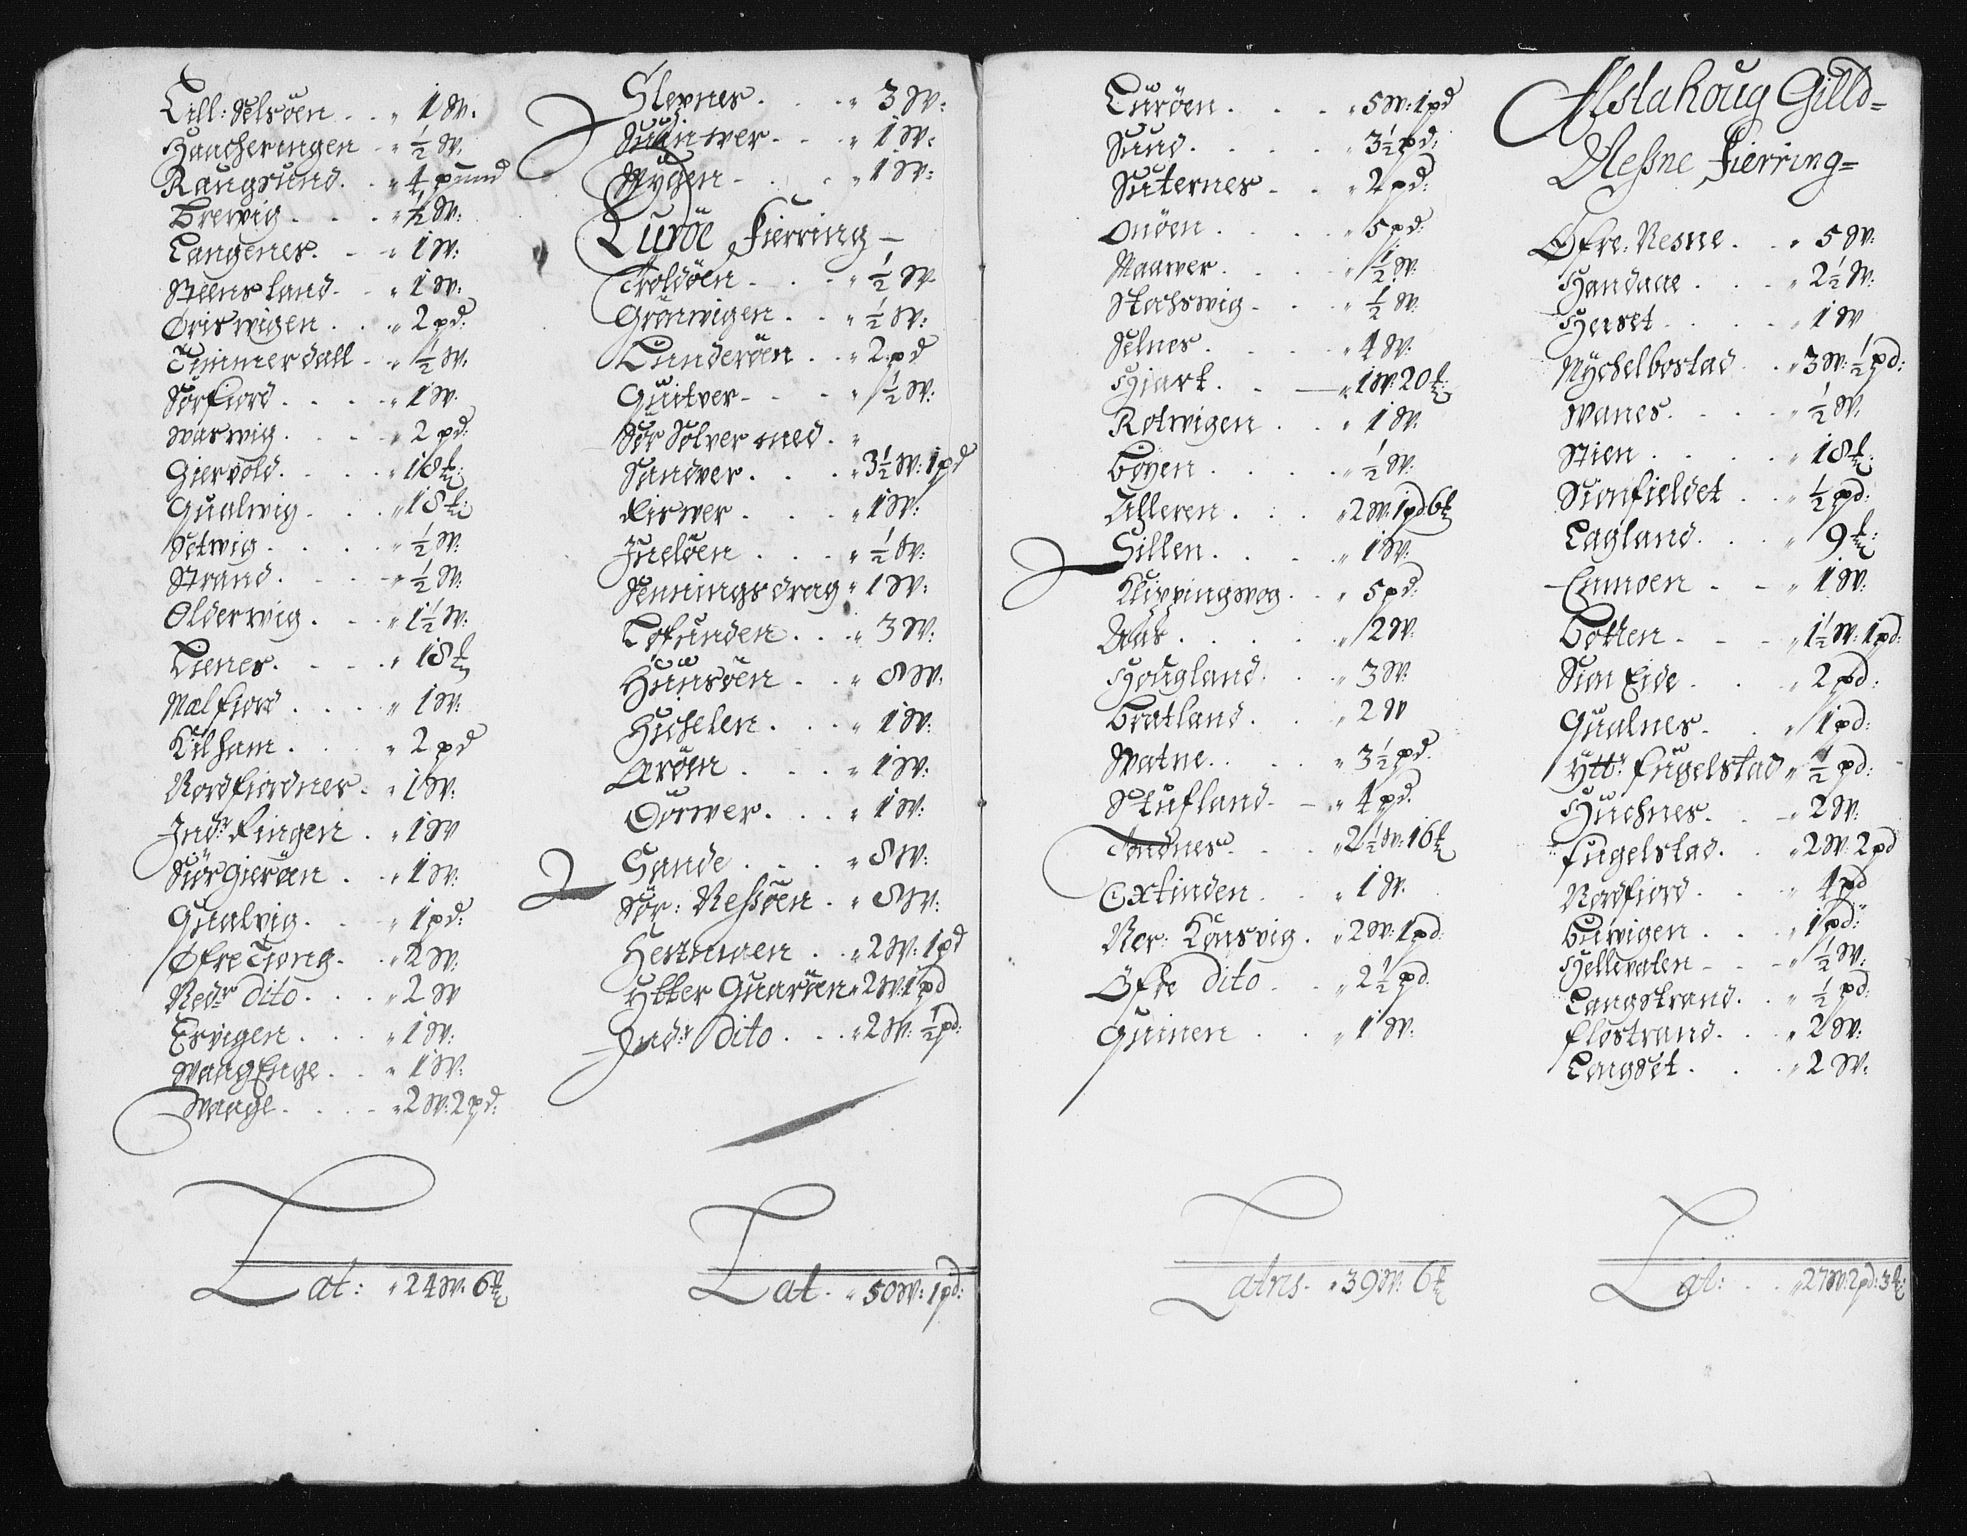 Lill: Selsöen . . „ 1 W:
Haacheringen „ ½ W:
Raugsund . „ 4 pund
Brewig . . . „ ½ W:
Langenes . . „ 1 W:
Steensland . „ 1 W:
Oriswigen . . „ 2 pd:
Timmerdall . „ ½ W:
Sörfiord . . . „ 1 W.
Warwig . . . „ 2 pd:
Giervold . . . „ 18 ℔:
Qualwig . . . „ 18 ℔:
Setwig . . . „ ½ W:
Strand . . . „ ½ W:
Olderwig . . „ 1½ W:
Lienes . . . „ 18 ℔
Melfiord . . . „ 1 W:
Kilham . . . „ 2 pd
Nordfiordnes . „ 1 W:
Indr Ringen . „ 1 W
Siör Gieröen . „ 1 W:
Qualvig . . . „ 1 pd:
Øfre Tiong . „ 2 W:
Nedr dito . . . „ 2 W
Esvigen . . . „ 1 W:
Waag Enge . . „ 1 W:
Waage . . . „ 2 W: 2 pd:
Lat: „ 24 W: 6 ℔
Slepnes . . . „ 3 W:
Suinwer . . „ 1 W:
Nygen . . . „ 1 W:
Luröe Fierring
Troldöen . . . „ ½ W
Grönwigen . . „ ½ W:
Lunderöen . . „ 2 pd
Quitver . . . „ ½ W:
Sör Solver med . „
Sandver . . . „ 3½ W: 1 pd
Riswer . . . „ 1 W:
Juelöen . . . „ ½ W:
Senningsdrag „ 1 W:
Lofunden . . . „ 3 W:
Hüusöen . . „ 8 W:
Huchelen . . . „ 1 W:
Aröen . . . „ 1 W:
Oörwer . . . „ 1 W:
Sande . . . „ 8 W:
Sör: Nessöen . „ 8 W:
Hestmoen . . „ 2 W: 1 pd
Ytter Quaröen „ 2 W: 1 pd
Indr dito . . . „ 2 W: ½ pd:
Lat . „ 50 W: 1 pd:
Luröen . . . „ 5 W: 1 pd
Sund . . . . „ 3½ pd:
Suternes . . „ 2 pd:
Onöen . . . . „ 5 pd:
Maawer . . . „ ½ W.
Stochswig . . „ ½ W.
Selnes . . . „ 4 W:
Hiart . . „ 1 W: 20 ℔:
Rotwigen . . „ 1 W.
Boyen . . . . „ ½ W:
Alleren . . . „ 2 W: 1 pd 6 ℔
Sillen . . . „ 1 W:
Klippingwog . . „ 5 pd:
Aas . . . . . „ 2 W:
Hougland . . . „ 3 W:
Bratland . . . „ 2 W
Watne . . . . „ 3½ pd.
Stufland . . „ 4 pd.
Tondnes . . . „ 2½ W: 16 ℔
Extinden . . . „ 1 W.
Ner: Konsvig . „ 2 W: 1 pd:
Öfre dito . . „ 2½ pd.
Quinen . . . „ 1 W:
Latris . „ 39 W: 6 ℔
Alstahoug Gilld=
Nessne Fierring=
Öfre: Nesne . „ 5 W:
Handaae . . . „ 2½ W:
Herset . . . . „ 1 W
Mychelbostad . . „ 3 W: ½ pd:
Wanes . . . . „ ½ W:
Stien . . . . „ 18 ℔.
Sionfieldet . . „ ½ pd:
Lagland . . . „ 9 ℔:
Enmoen . . „ 1 W:
Botten . . . „ 1½ W: 1 pd:
Sion Eide . . „ 2 pd:
Qualnes . . . „ 1 pd:
Yttr Fugelstad „ ½ pd:
Huchnes . . . „ 2 W:
Fugelstad . . „ 2 W: 2 pd
Nordfiord . . . „ 4 pd
Burvigen . . . „ 1 pd:
Hellevaten . . „ ½ W:
Langstrand . . „ ½ pd:
Flostrand . . „ 2 W:
Langset . . . „ 2 W:
Lat: . . „ 27 W: 2 pd: 3 ℔: